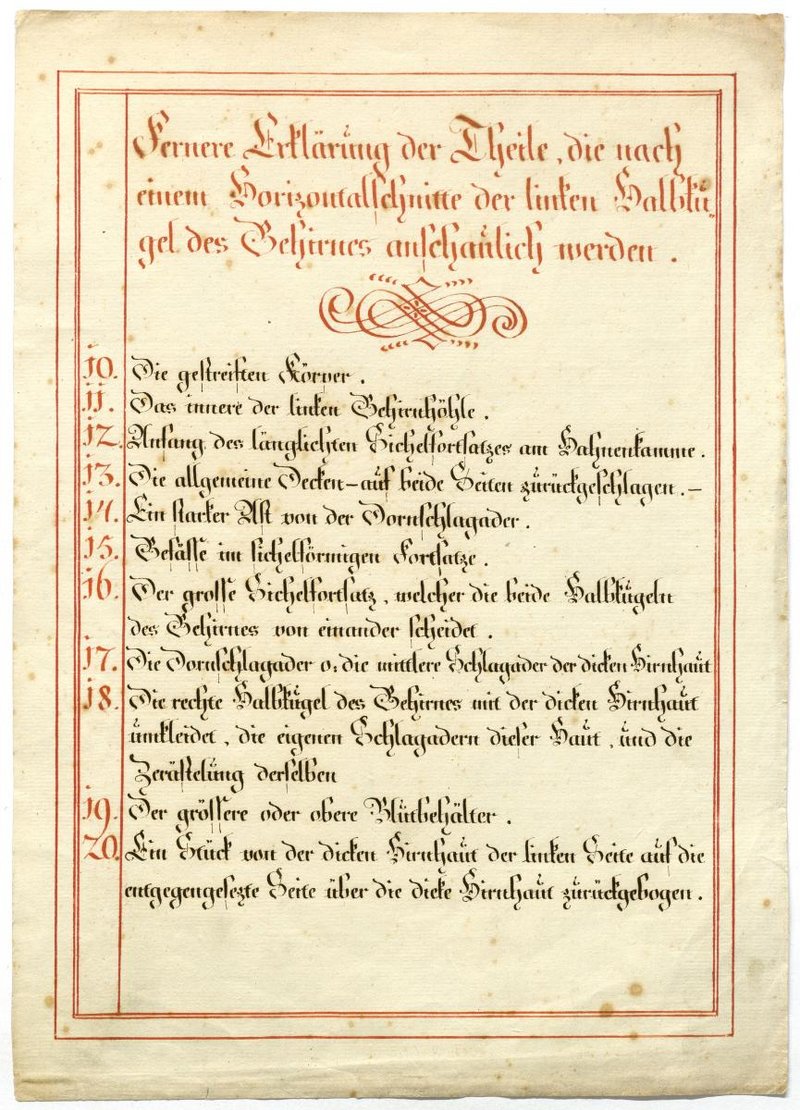 Fernere Erklärung der Theile, die nach
einem Horizontalschnitte der linken Halbku„
gel des Gehirnes anschaulich werden.
10. Die gestreiften Körper.
11. Das innere der linken Gehirnhöhle.
12. Anfang des länglichten Sichelfortsatzes am Hahnenkamme.
13. Die allgemeine Decken – auf beide Seiten zurückgeschlagen. –
14. Ein starker Ast von der Dornschlagader.
15. Gefässe im sichelförmigen Fortsatze.
16. Der grosse Sichelfortsatz, welcher die beide Halbkugeln
des Gehirnes von einander scheidet.
17. Die Dornschlagader o: die mittlere Schlagader der dicken Hirnhaut
18. Die rechte Halbkugel des Gehirnes mit der dicken Hirnhaut
umkleidet, die eigenen Schlagadern dieser Haut, und die
Zerästelung derselben
19. Der grössere oder obere Blutbehälter.
20. Ein Stück von der dicken Hirnhaut der linken Seite auf die
entgegengesezte Seite über die dicke Hirnhaut zurückgebogen.